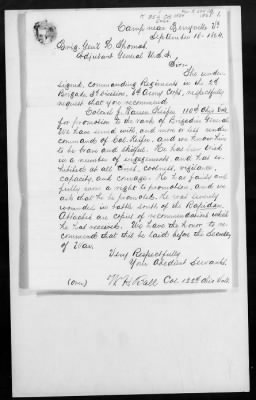 Camp near Berryville Va
September 16th 1864.
Brig. Gen'l L. Thomas,
Adjutant General U.S.A,
Sir:
The under
signed, commanding Regiments in the 2d
Brigade 3d Division, 6th Army Corps, respectfully
request that you recommend
Colonel J. Warren Keifer, 110th Ohio Vols
for promotion to the rank of Brigadier General
We have served with, and more or less under
command of Col. Keifer, and we know him
to be brave and skilful. He has been tried
in a number of engagements, and has ex-
hibited at all times, coolness, vigilance,
capacity, and courage. He has fairly and
fully won a right to promotion, and we
ask that he be promoted. He was severely
wounded in battle south of the Rapidan.
Attached are copies of recommendations which
he has received. We have the honor to re-
commend that this be laid before the Secretary
of War.
Very Respectfully
Your Obedient Servants.
(over)
Col. 122d Ohio Vols.